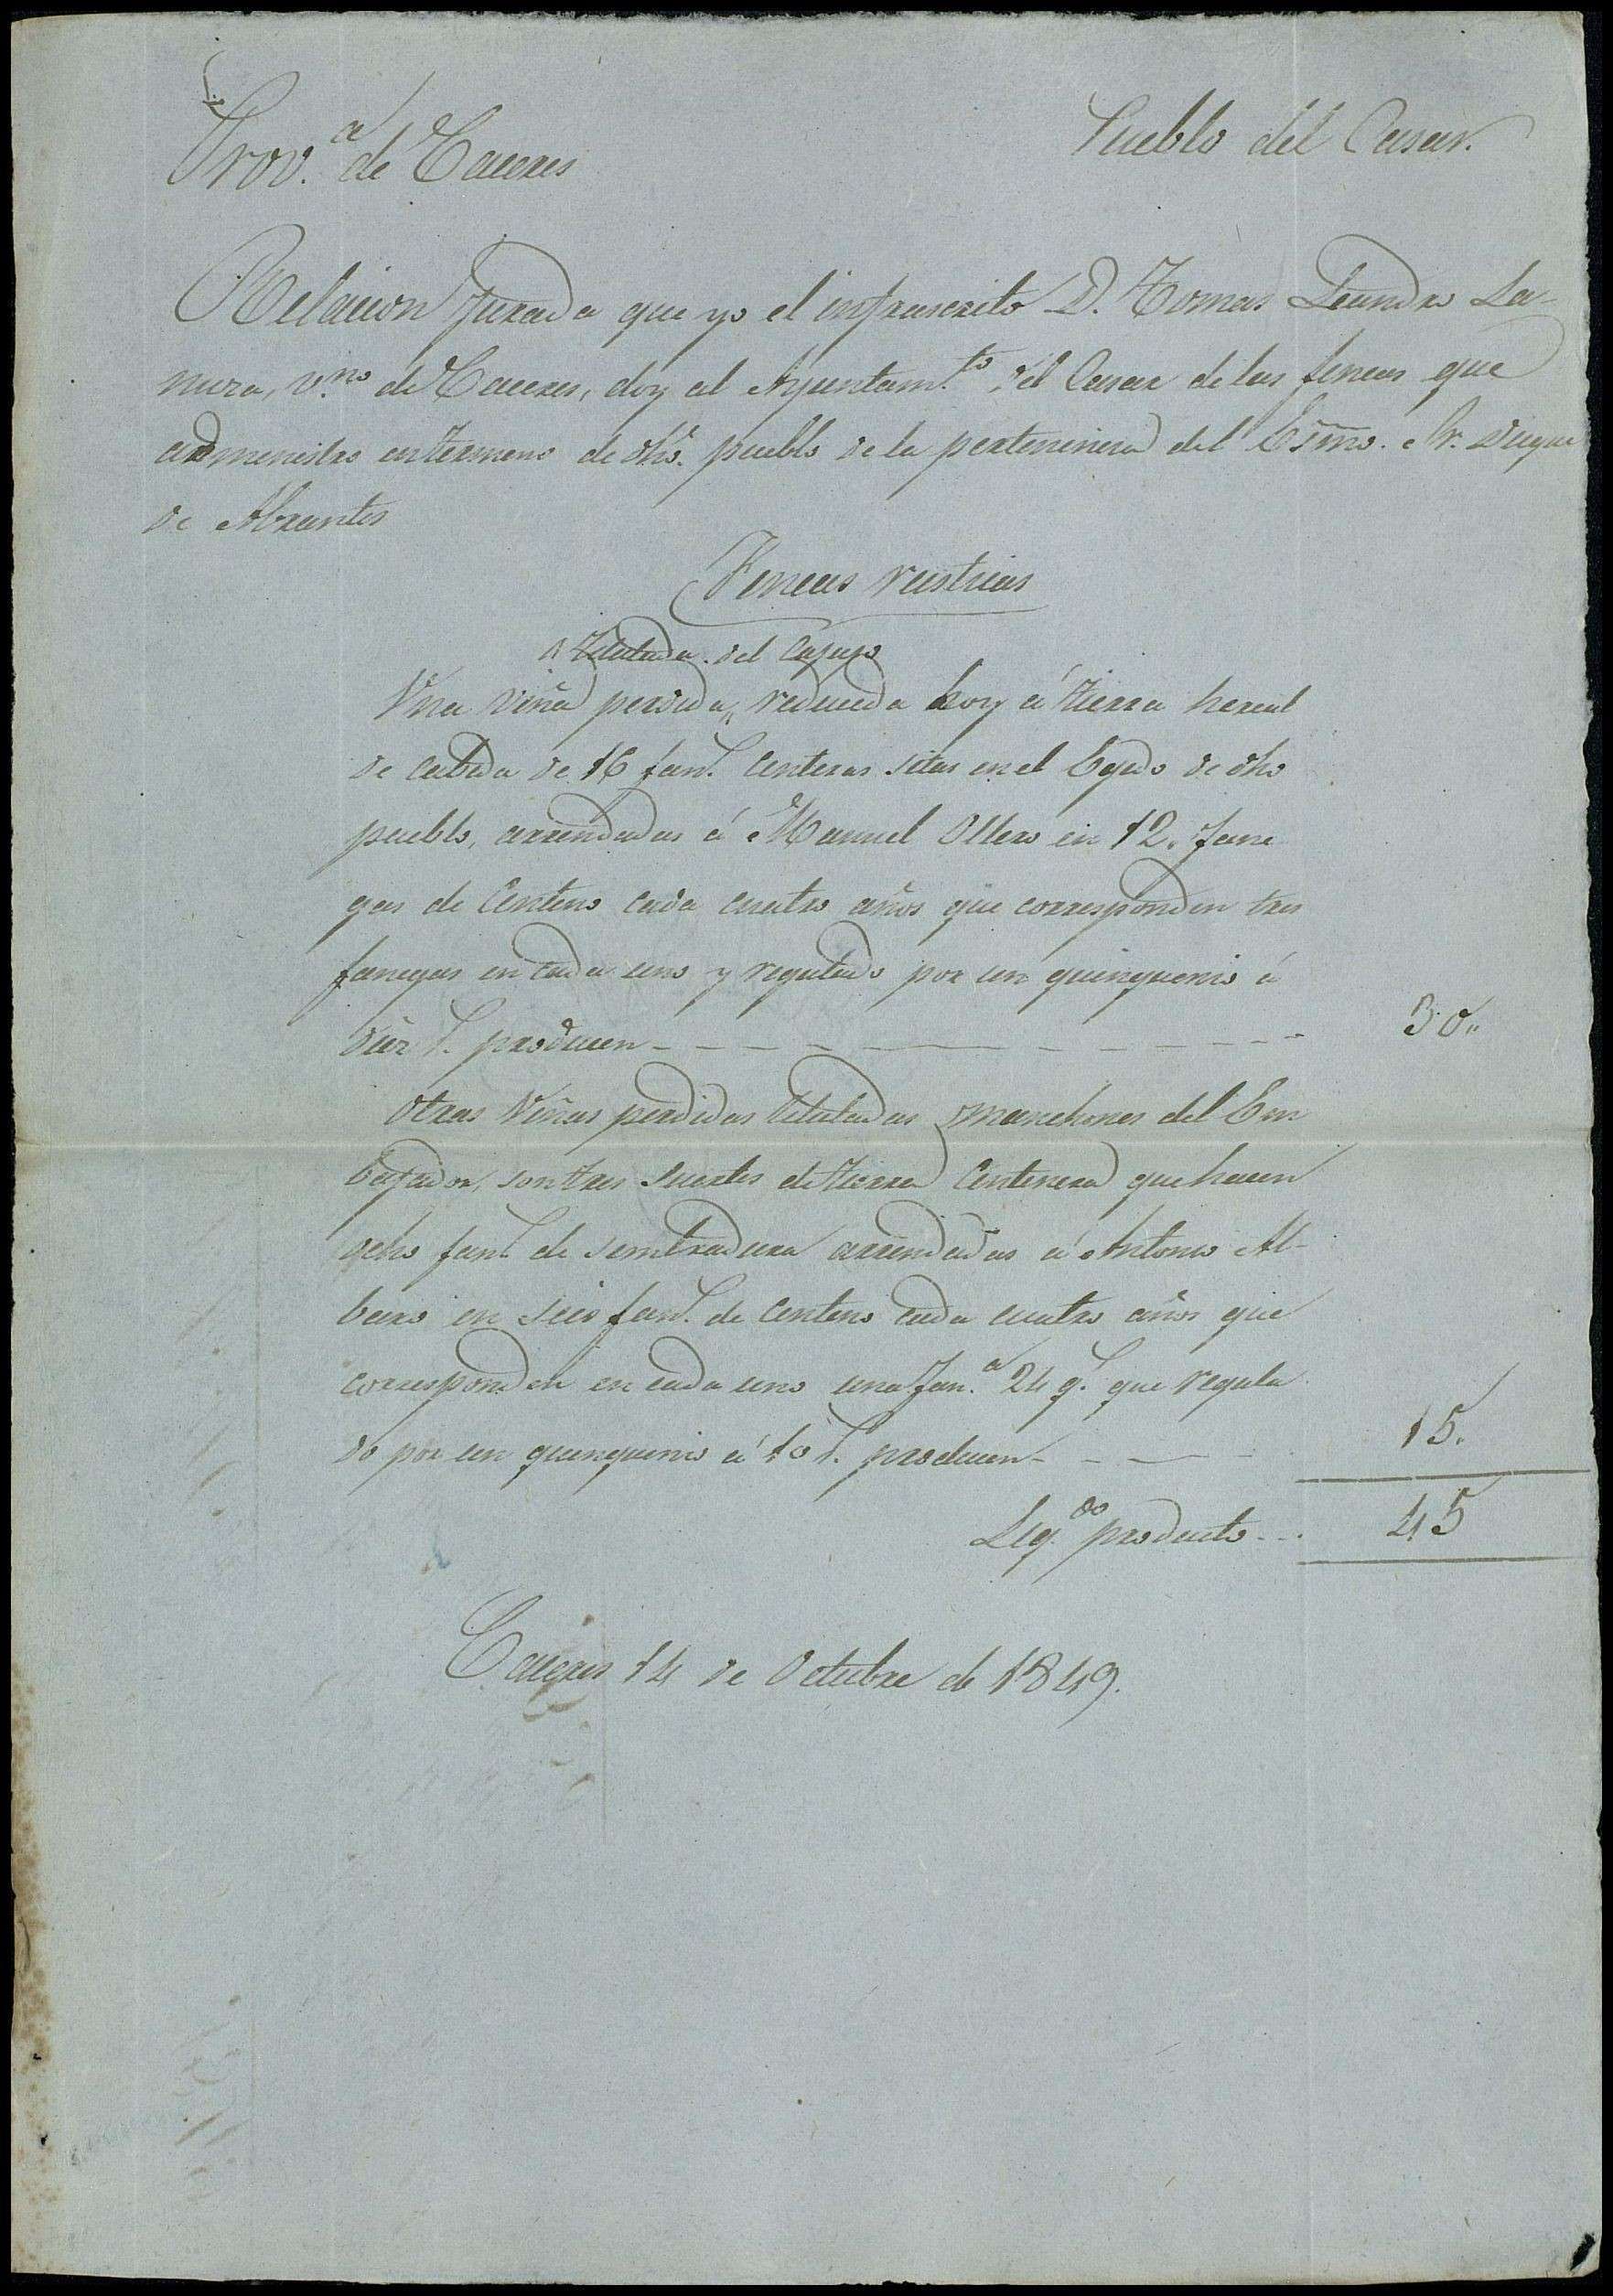 Prov.ª de Caceres
Pueblo del Casar.
Relacion Jurada que yo el infrascrito D. Tomas Leandro La-
mora, v.no de Caceres, doy al Ayuntam.to del Casar de las fincas que
administro en termino de dho. pueblo de la pertenencia del Esmo. Sr. Duque
de Abrantes
Fincas rusticas
Titulada del Capazo
Una viña perdida, reducida hoy á tierra herial
de cabida de 16 fan.s Centeras sitas en el Egido de dho
pueblo, arrendadas á Manuel Ollero en 12. fane
gas de Centeno cada cuatro años que corresponden tres
fanegas en cada uno y regulado por un quinquenio á
diez r.s producen - - - - - - - - - - - 30"
Otras Viñas perdidas tituladas manchones del Em
bajador, son tres suertes de tierra Centenera que hacen
ocho fan.s de sembradura arrendadas á Antonio Al-
baro en seis fan.s de Centeno cada cuatro años que
corresponden en cada uno una fan.ª 24 q.s que regula
do por un quinquenio á 10 r.s producen - - - - 15.
Liq.do producto - - . 45
Caceres 14 de Octubre de 1849.